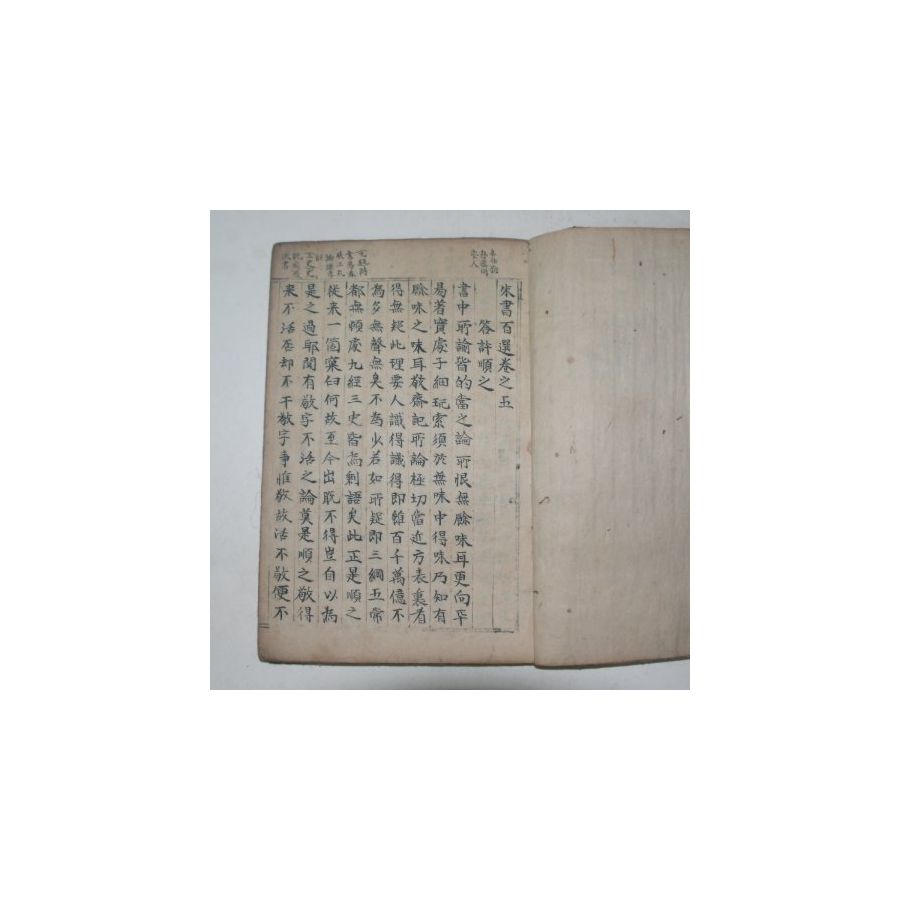 朱書百選卷之五
答許順之
書中所諭皆的當之論所恨無餘味耳更向平
易著實處子細玩索須於無味中得味乃知有
餘味之味耳敬齋記所論極切當近方表裏看
得無疑此理要人識得識得即雖百千萬億不
為多無聲無臭不為少若如所疑即三綱五常
都無頓處九經三史皆為剩語矣此正是順之
從來一箇窠臼何故至今出脫不得豈自以為
是之過耶聞有敬字不活之論莫是順之敬得
來不活否却不干敬字事惟敬故活不敬便不